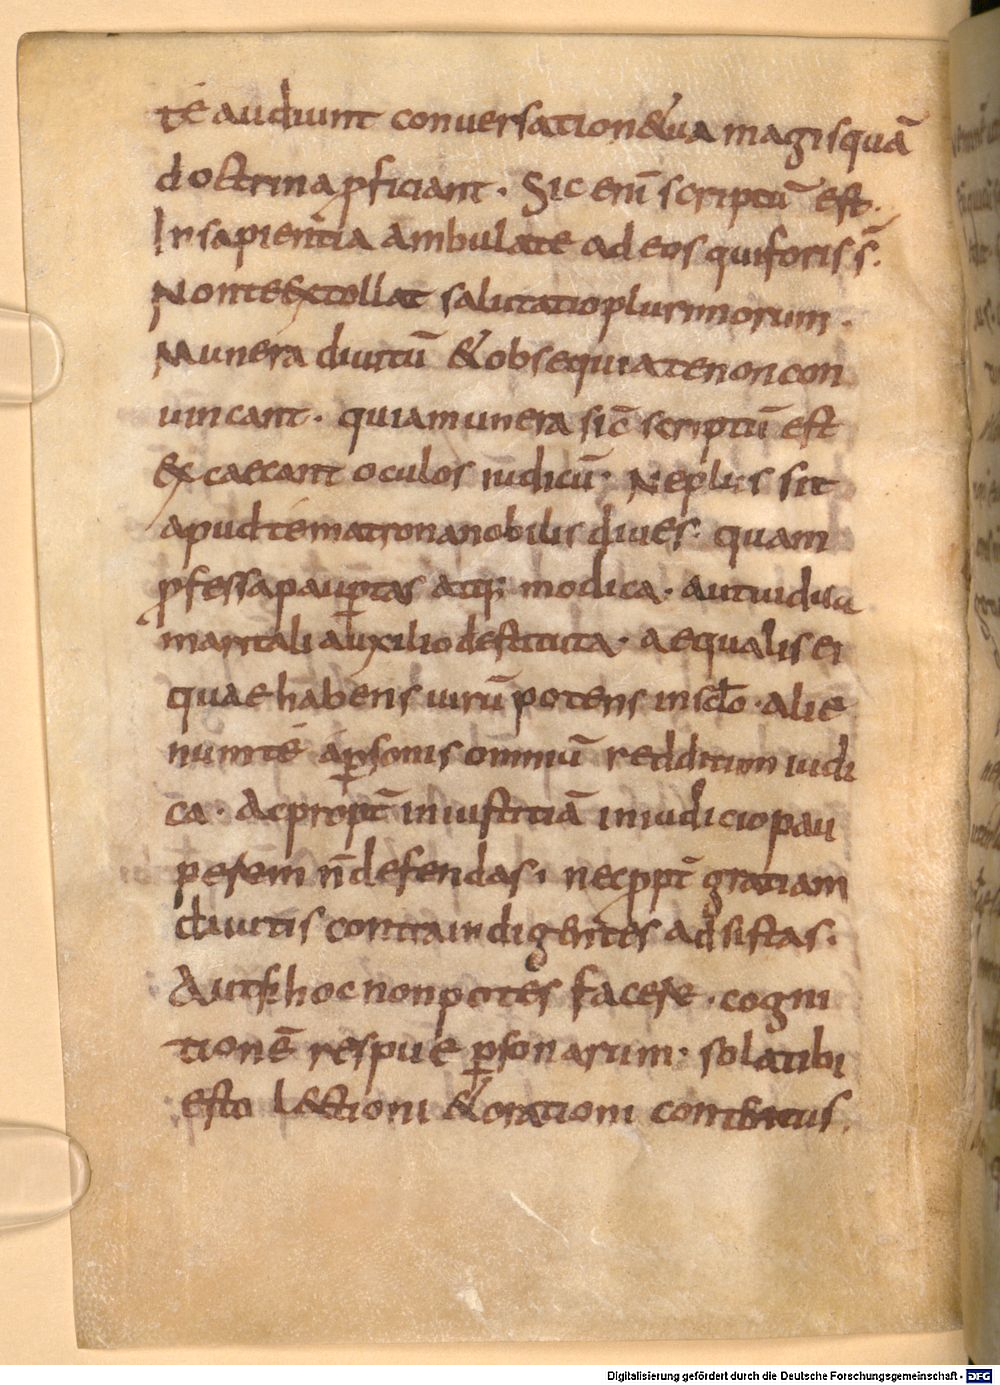 té audiunt conuersation&ua magisquā
doctrina pficiant · Sic enī scriptū est.
In sapientia ambulate adeos quiforis s̄.
Nonte extollat salutatio plurimorum ·
Munera diuitū & obsequia tenoncon
uincant · quiamunera sic̄ scriptū est
excaecant oculos iudicū · Neplus sit
apudtématronanobilis diues · quam
pfessapaup̱tas atq; modica · autuidua
maritali auxilio destituta · aequalis ei
quae habens uirū potens insc̄lo · alie
numté ap̱sonis omniū redditum iudi
ca · Acpropt̄ iniustitiā iniudicio pau
perem n̄defendas · necpropt̄ gratiam
diuitis contraindigentes adsistas ·
Autsi hoc nonpotes facere · cogni
tionē respue p̱sonarum · solatibi
esto l&ioni & orationi contentus.
Digitalisierung gefördert durch die Deutsche Forschungsgemeinschaft - DFG